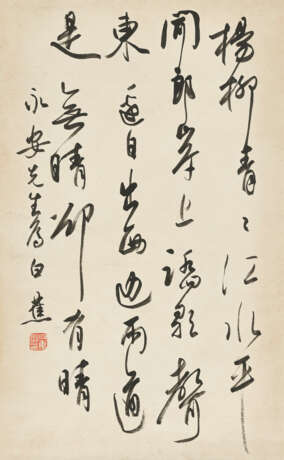 楊柳青〻江水平
聞郎岸上踏歌聲
東邊日出西邊雨道
是無晴卻有晴
永安先生屬 白蕉